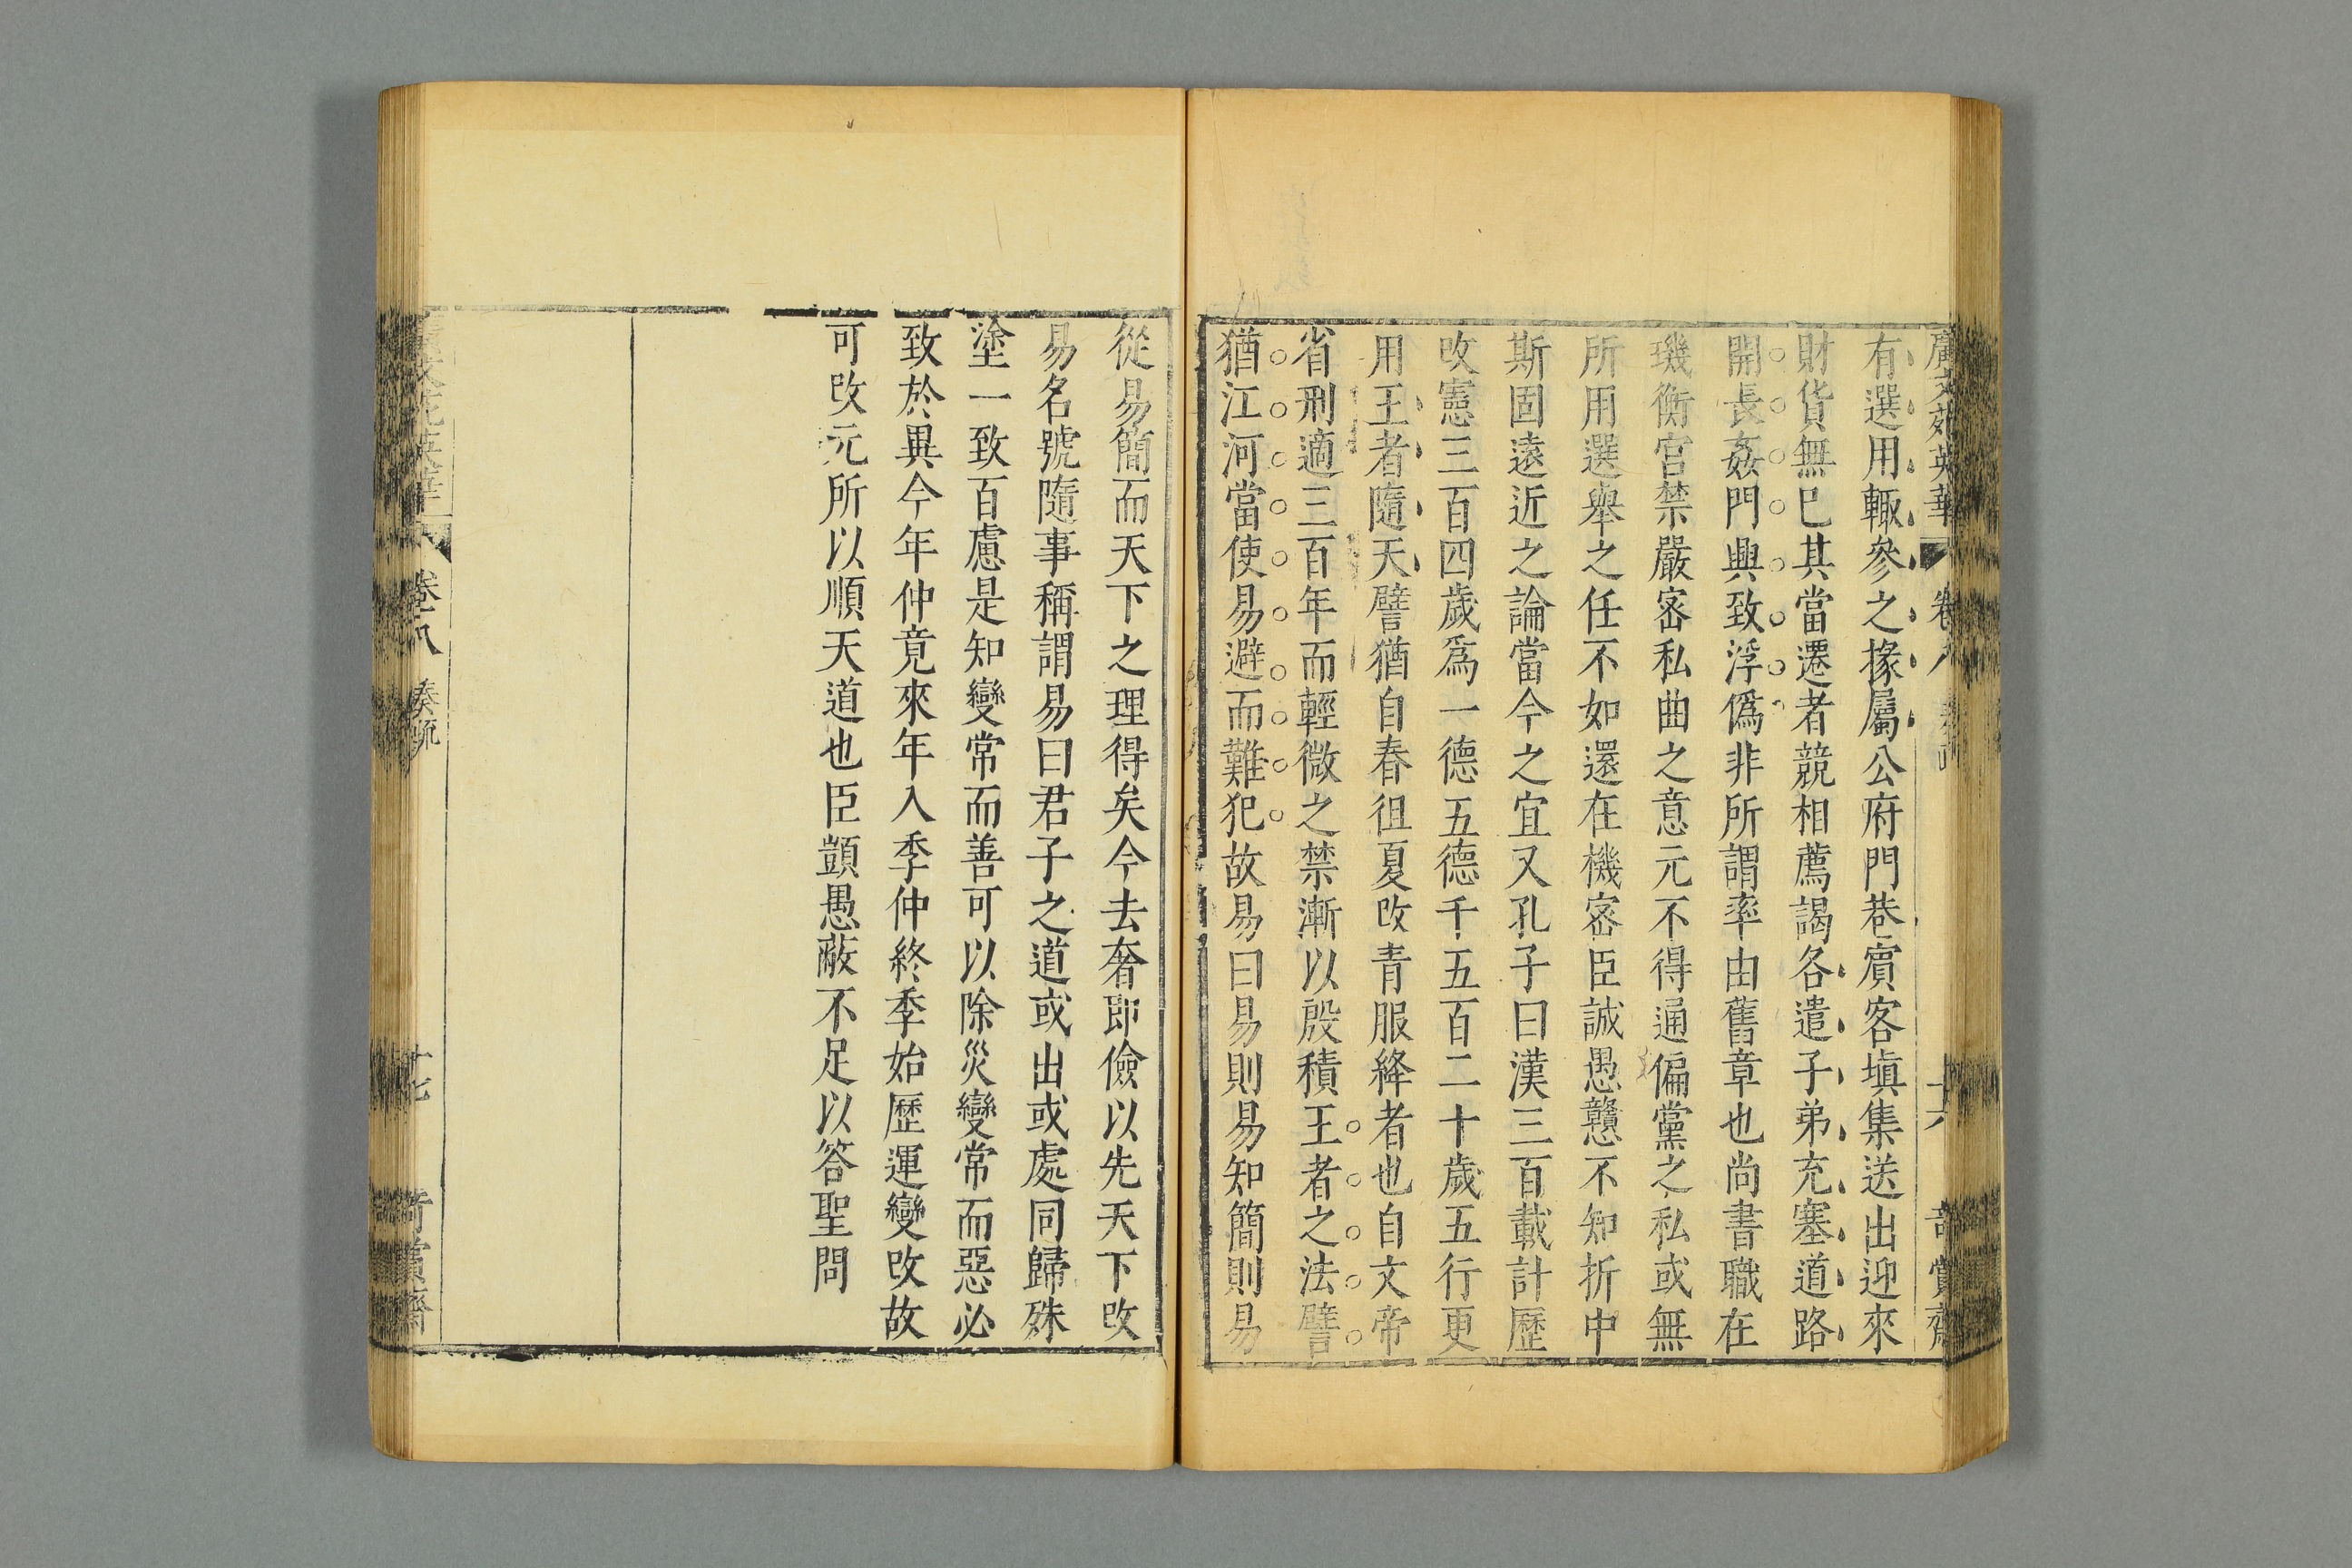 廣文苑英華 卷八 十六 奇賞齋
有選用輙參之掾屬公府門巷賓客塡集送出迎來
財貨無已其當遷者競相薦謁各遣子弟充塞道路
開長姦門興致浮僞非所謂率由舊章也尚書職在
璣衡宫禁嚴宻私曲之意元不得通偏黨之私或無
所用選舉之任不如還在機宻臣誠愚戇不知折中
斯固遠近之論當今之宜又孔子曰漢三百載計歷
改憲三百四歲爲一德五德千五百二十歲五行更
用王者隨天譬猶自春徂夏改青服絳者也自文帝
省刑適三百年而輕微之禁漸以殷積王者之法譬
猶江河當使易避而難犯故易曰易則易知簡則易
從易簡而天下之理得矣今去奢即儉以先天下改
易名號隨事稱謂易曰君子之道或出或處同歸殊
塗一致百慮是知變常而善可以除災變常而惡必
致於異今年仲竟來年入季仲終季始歷運變改故
可改元所以順天道也臣顗愚蔽不足以答聖問
卷八 奏疏 十七 奇賞齋